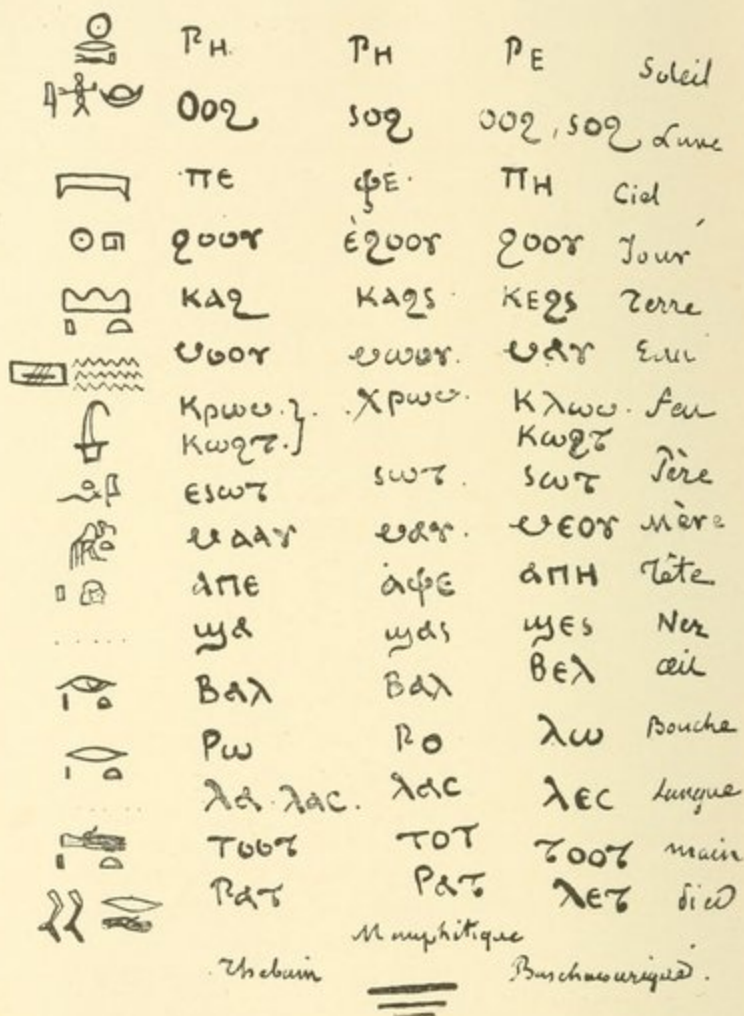 ⲢⲎ ⲢⲎ ⲢⲈ Soleil
ⲞⲞϨ ⲒⲞϨ ⲞⲞϨ, ⲒⲞϨ Lune
ⲠⲈ ⲪⲈ ⲠⲎ Ciel
ϨⲞⲞⲨ ⲈϨⲞⲞⲨ ϨⲞⲞⲨ Jour
ⲔⲀϨ ⲔⲀϨⲒ ⲔⲈϨⲒ Terre
ⲘⲞⲞⲨ ⲘⲰⲞⲨ ⲘⲀⲨ Eau
ⲔⲢⲰⲘ. ⲬⲢⲰⲘ. ⲔⲖⲰⲘ. feu
ⲔⲰϨⲦ. ⲔⲰϨⲦ
ⲈⲒⲰⲦ ⲒⲰⲦ. ⲒⲰⲦ Père
ⲘⲀⲀⲨ ⲘⲀⲨ. ⲘⲈⲞⲨ Mère
ⲀⲠⲈ ⲀⲪⲈ ⲀⲠⲎ Tête
ϢⲀ ϢⲀⲒ ϢⲈⲒ Nez
ⲂⲀⲖ ⲂⲀⲖ ⲂⲈⲖ œil
ⲢⲰ ⲢⲞ ⲖⲰ Bouche
ⲖⲀ. ⲖⲀⲤ. ⲖⲀⲤ ⲖⲈⲤ Langue
ⲦⲞⲞⲦ ⲦⲞⲦ ⲦⲞⲞⲦ main
ⲢⲀⲦ ⲢⲀⲦ ⲖⲈⲦ pied
Memphitique
Thebain Baschmourique.